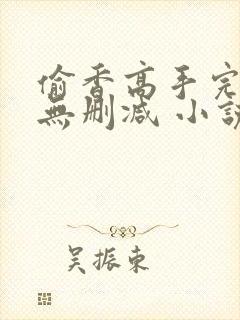 偷香高手完
無刪減 小說
吴振東